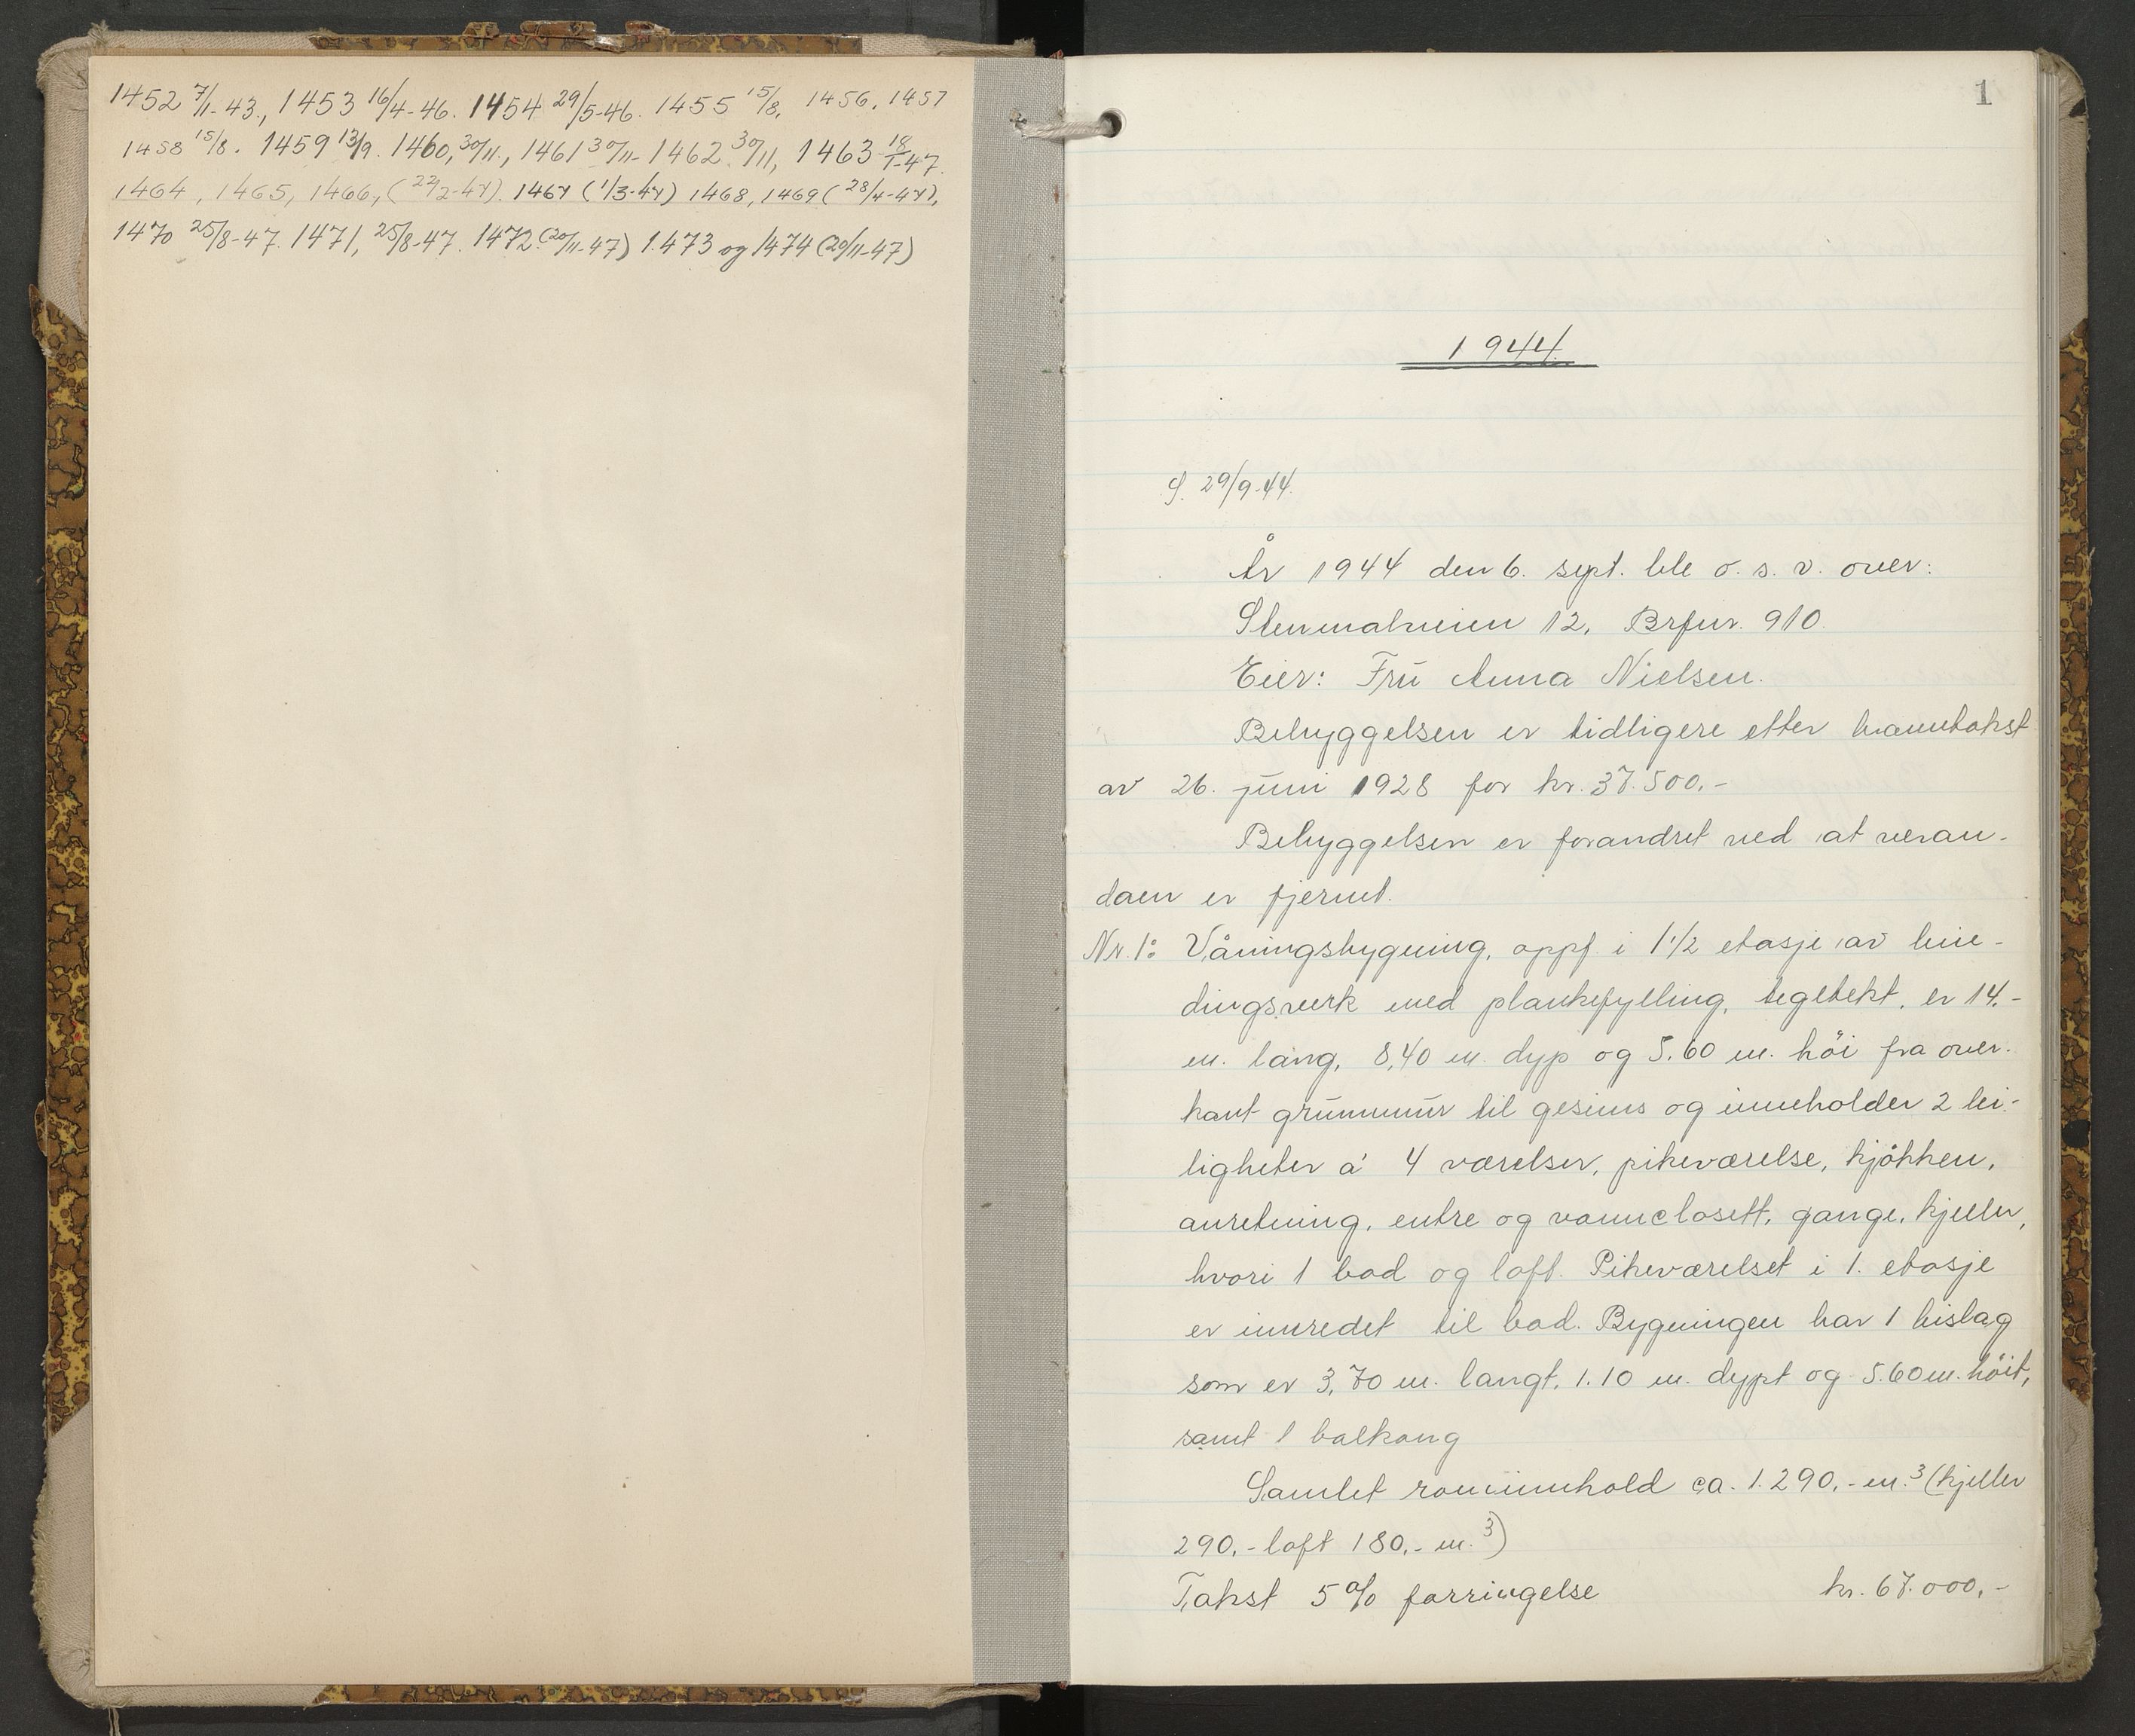 1452 7/11-43., 1453 16/4-46. 1454 29/5-46. 1455 15/8, 1456, 1457
1458 15/8. 1459 13/9. 1460, 30/11., 1461 30/11- 1462 30/11, 1463 18/1-47.
1464, 1465, 1466, (22/2-47). 1467 (1/3-47) 1468, 1469 (28/4-47),
1470 25/8-47. 1471, 25/8-47. 1472 (20/11-47) 1473 og 1474 (20/11-47)
1
1944
S. 29/9-44.
År 1944 den 6. sept. ble o. s. v. over:
Stenmalveien 12, Brfnr. 910.
Eier: Fru Anna Nielsen.
Bebyggelsen er tidligere etter branntakst
av 26. juni 1928 for kr. 37.500,-
Bebyggelsen er forandret ved at veran-
daen er fjernet.
Nr. 1: Våningsbygning, oppf. i 1 1/2 etasje av bin-
dingsverk med plankefylling, tegltekt, er 14.-
m. lang, 8,40 m. dyp og 5.60 m. höi fra over-
kant grunnmur til gesims og inneholder 2 lei-
ligheter á 4 værelser, pikeværelse, kjökken,
anretning, entre og vannclosett, gange, kjeller,
hvori 1 bad og loft. Pikeværelset i 1. etasje
er innredet til bad. Bygningen har 1 bislag
som er 3,70 m. langt, 1.10 m. dypt og 5.60 m. höit,
samt 1 balkong
Samlet rominnhold ca. 1.290,- m.3 (kjeller
290,- loft 180,- m.3)
Takst 5% forringelse kr. 67.000,-